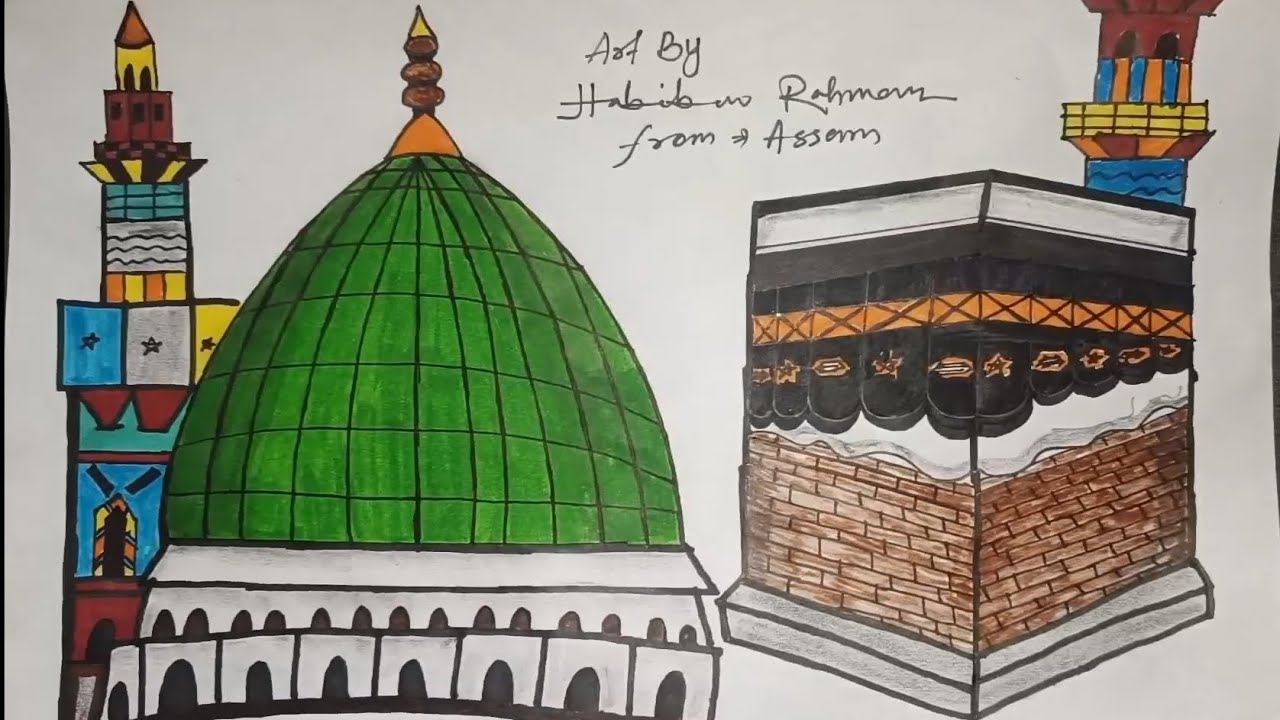 Art By
Habibur Rahman
from → Assam